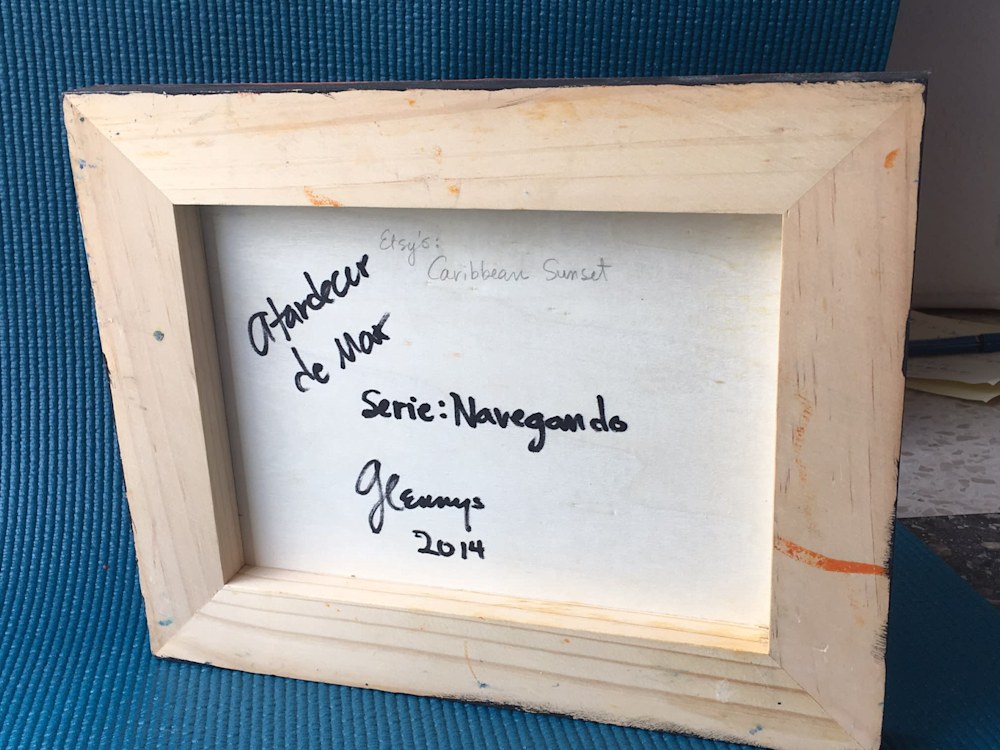 Etsy's:
Caribbean Sunset
Atardecer
de Mar
Serie: Navegando
Glennys
2014